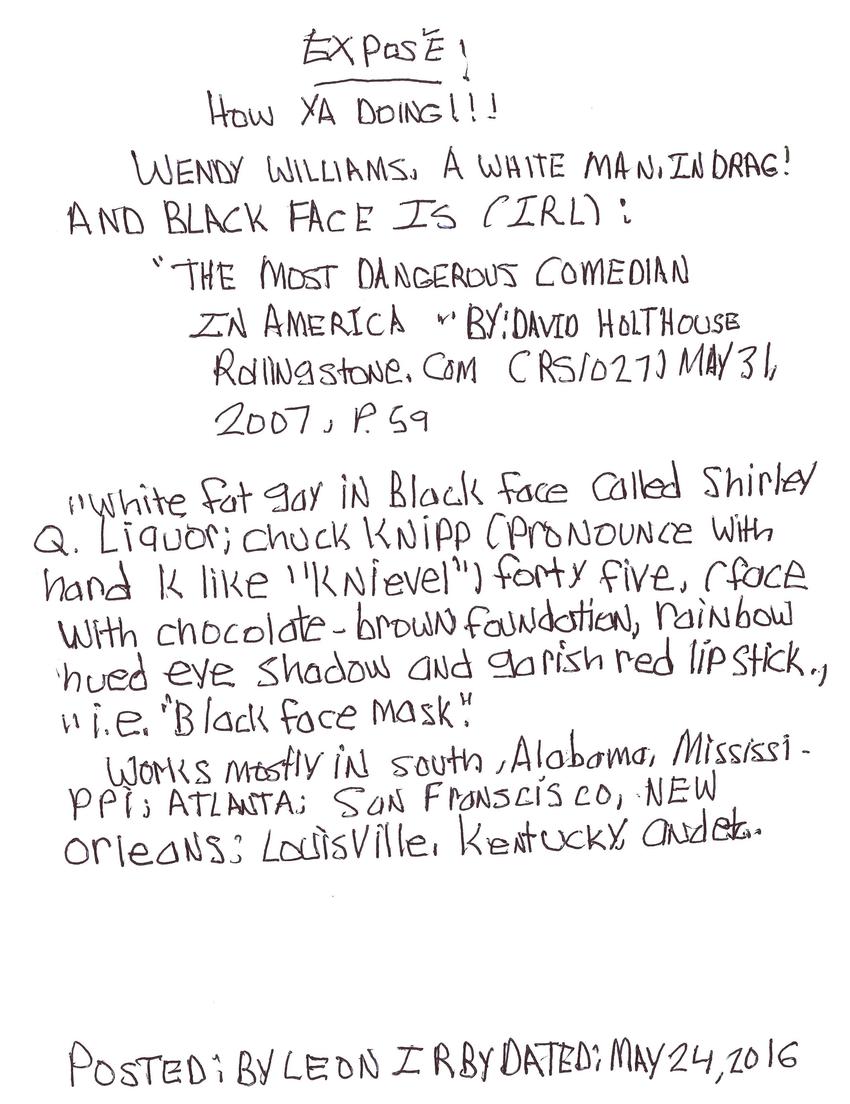 EXPOSÉ!
HOW YA DOING!!!
WENDY WILLIAMS, A WHITE MAN, IN DRAG!
AND BLACK FACE IS (IRL):
"THE MOST DANGEROUS COMEDIAN
IN AMERICA " BY: DAVID HOLTHOUSE
Rollingstone. COM (RS1027) MAY 31,
2007, P. 59
"White fat gay in Black face Called Shirley
Q. Liquor; chuck KNIPP (PRONOUNCE With
hard k like "KNievel") forty five, (face
With chocolate-brown foundation, rainbow
hued eye shadow and garish red lip stick.,
" i.e. "Black face mask".
Works mostly in south, Alabama, Mississi-
PPi; ATLANTA; San Franscisco, NEW
Orleans; Louisville, Kentucky, and et..
POSTED; BY LEON IRBY DATED; MAY 24, 2016